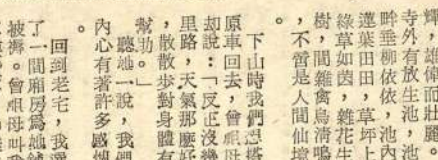 輝，雄偉而壯麗。
寺外有放生池，池
畔垂柳依依，池內
蓮葉田田，草坪上
綠草如茵，雜花生
樹，間雜禽鳥清鳴
，不啻是人間仙境
。
下山時我們想搭
原車回去，曾祖母
却說：「反正沒幾
里路，天氣那麼好
，散散步對身體有
幫助。」
聽她一說，我們
內心有著許多感慨
。
回到老宅，我選
了一間廂房為她鋪
被褥。曾祖母叫我